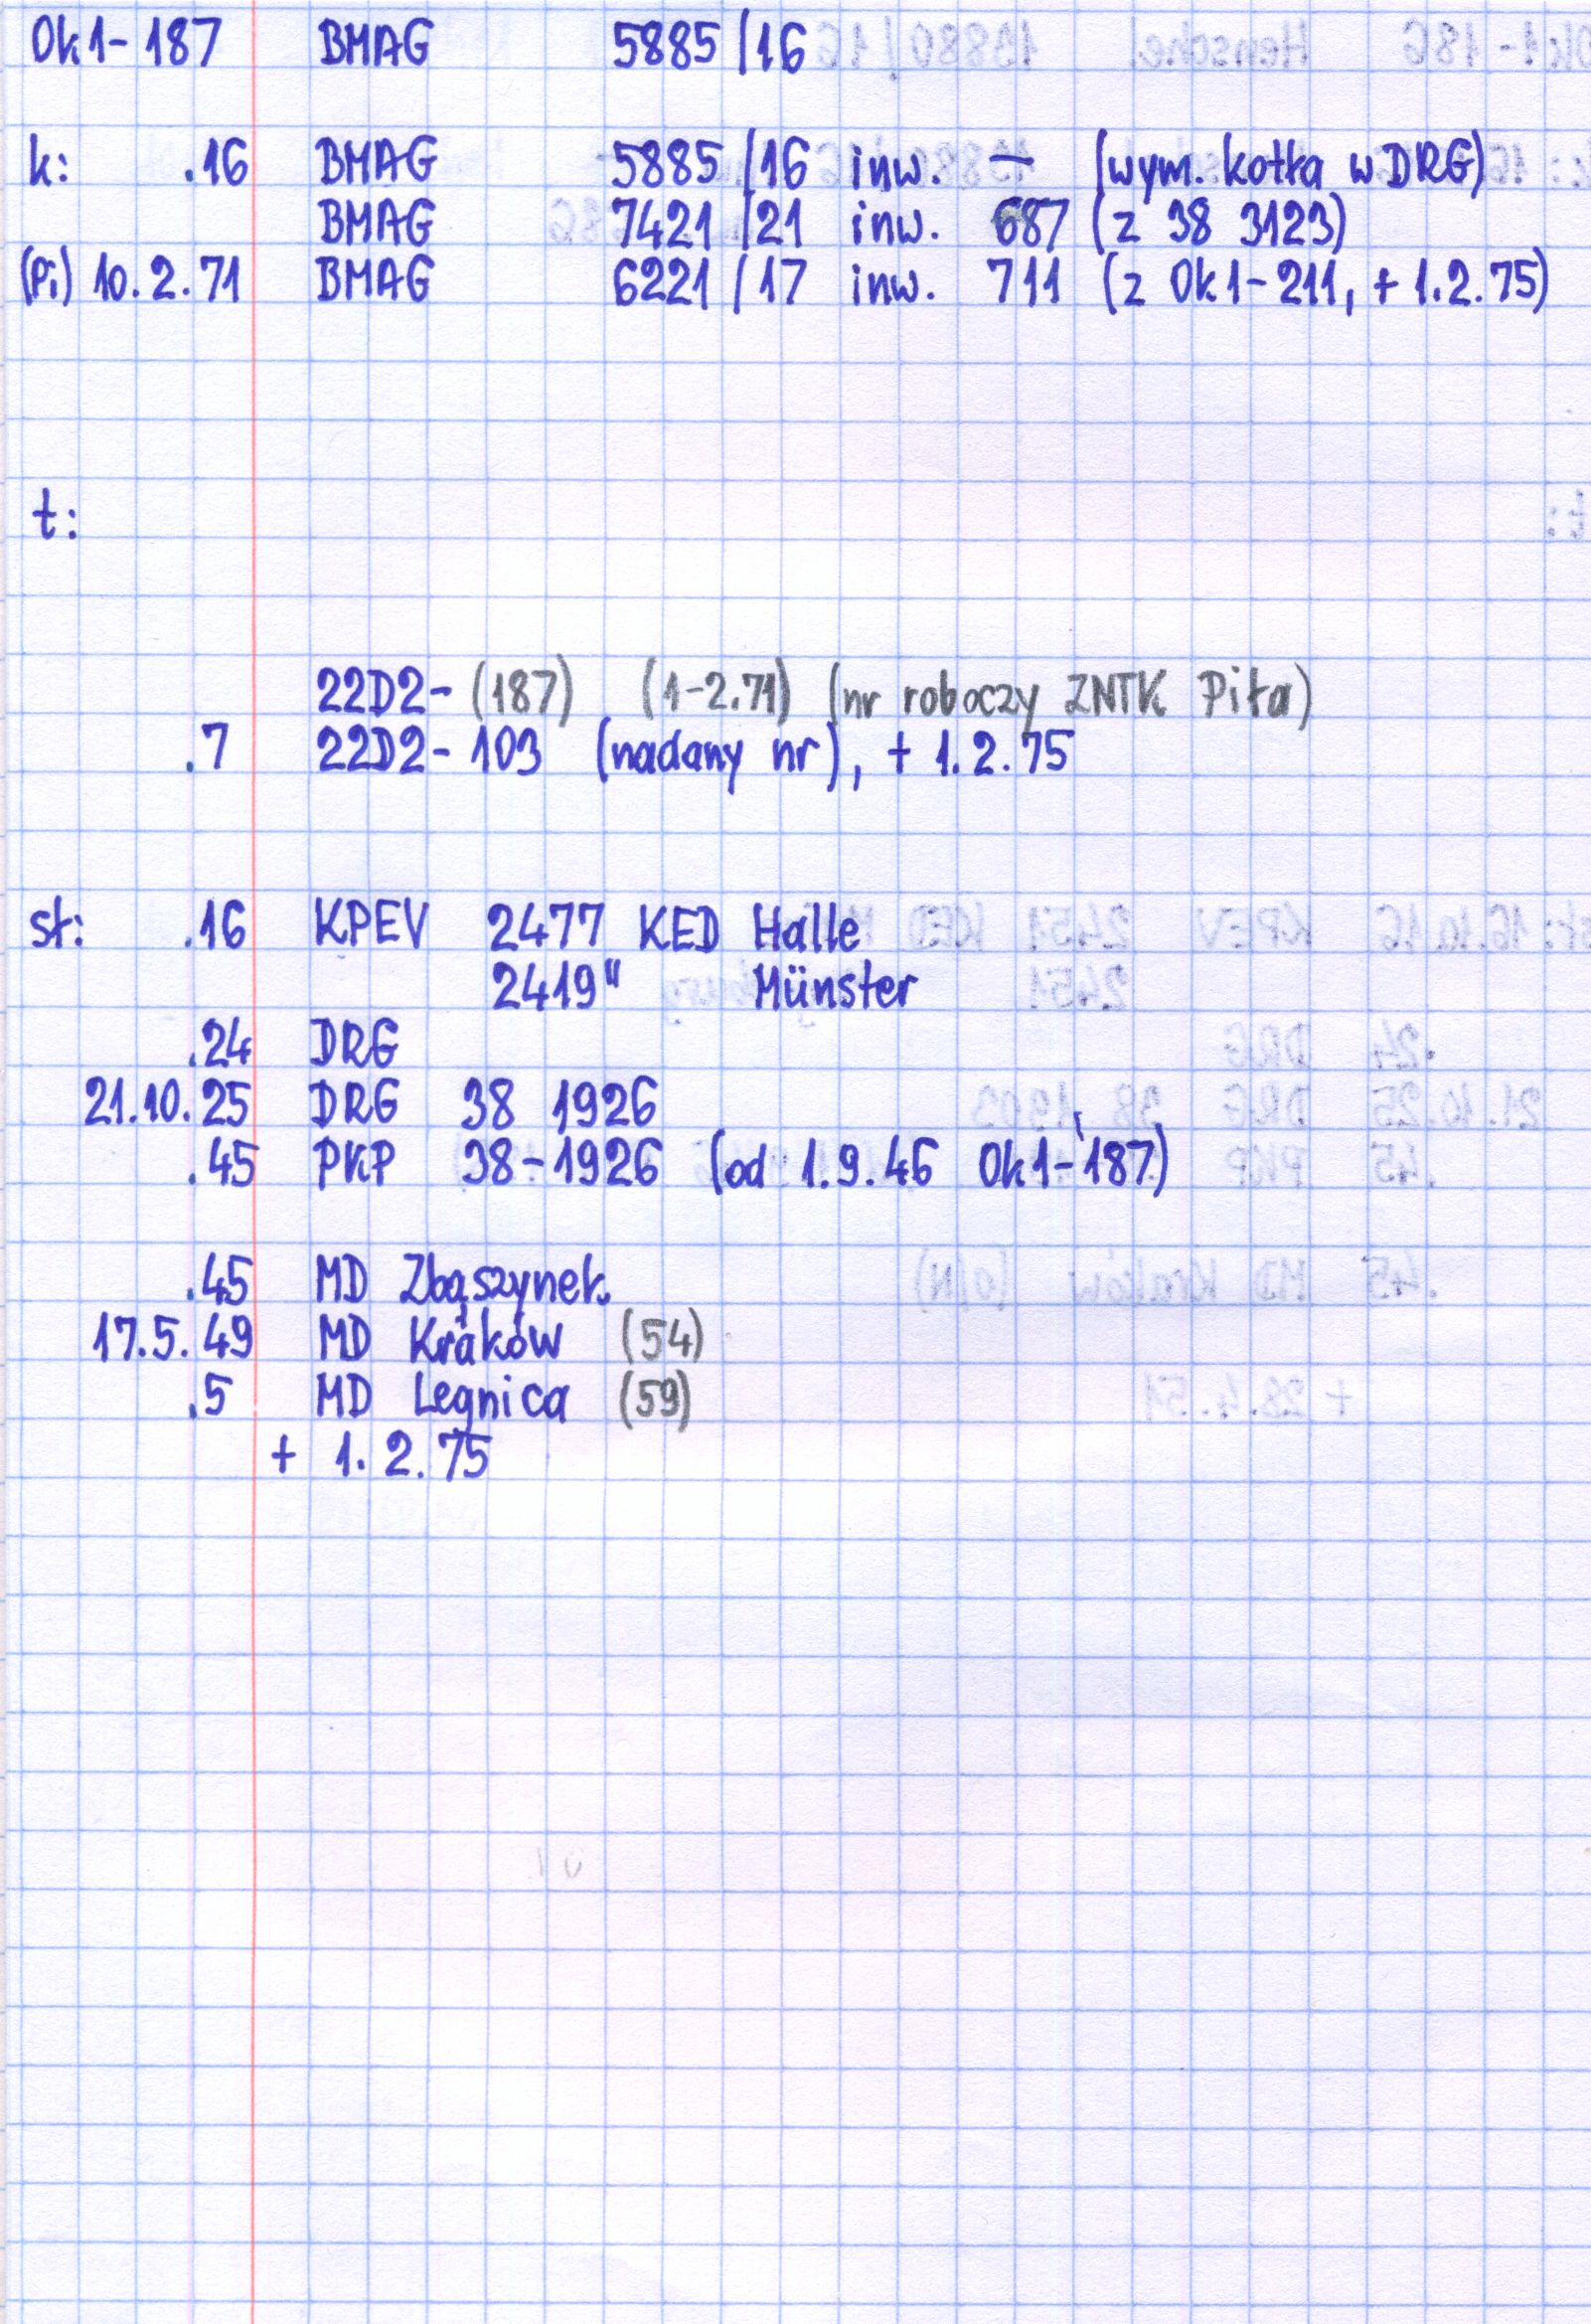 Ok1-187 BMAG 5885/16
k: .16 BMAG 5885/16 inw. — (wym. kotła w DRG)
BMAG 7421/21 inw. 687 (z 38 3123)
(Pi) 10.2.71 BMAG 6221/17 inw. 711 (z Ok1-211, + 1.2.75)
t:
22D2-(187) (1-2.71) (nr roboczy ZNTK Piła)
.7 22D2-103 (nadany nr), + 1.2.75
st: .16 KPEV 2477 KED Halle
2419" Münster
.24 DRG
21.10.25 DRG 38 1926
.45 PKP 38-1926 (od 1.9.46 Ok1-187)
.45 MD Zbąszynek
17.5.49 MD Kraków (54)
.5 MD Legnica (59)
+ 1.2.75